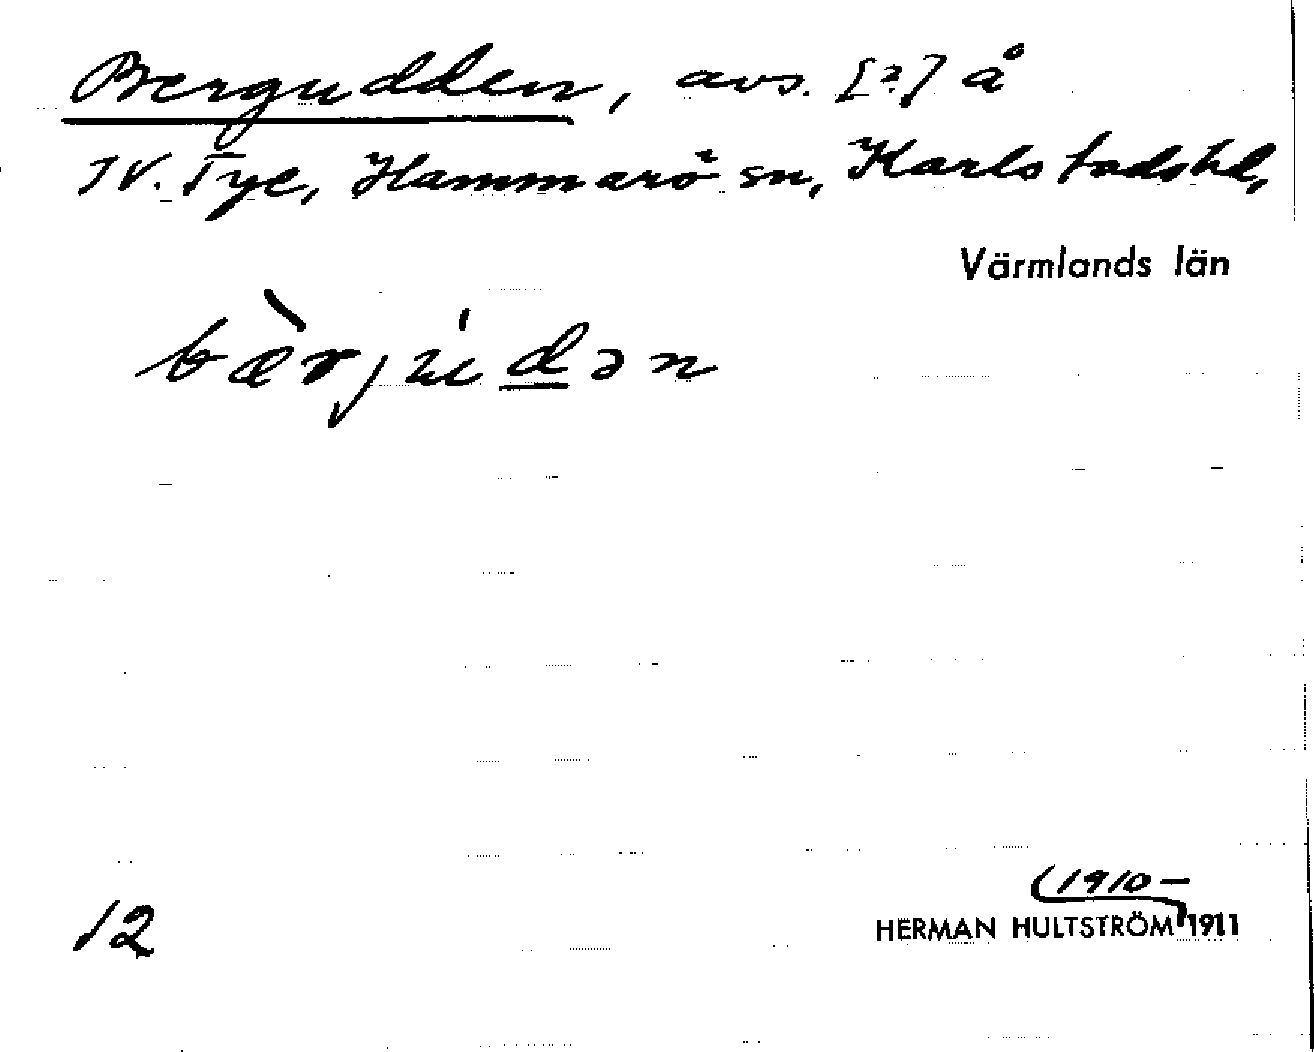 Bergudden, avs. [?] å
N. Tye, Hammarö sn, Karlstads hd,
Värmlands län
bæ̀rju̍dən
12
(1910–
HERMAN HULTSTRÖM 1911